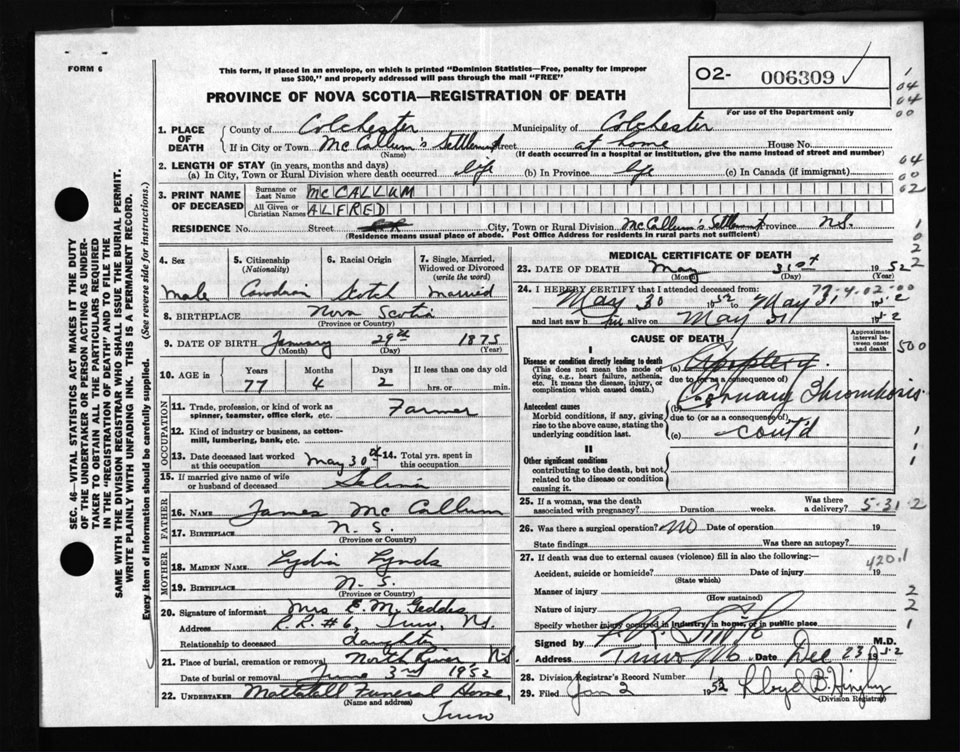 FORM 6
This form, if placed in an envelope, on which is printed "Dominion Statistics—Free, penalty for improper
use $300," and properly addressed will pass through the mail "FREE"
O2- 006309 ✓
For use of the Department only
PROVINCE OF NOVA SCOTIA—REGISTRATION OF DEATH
1. PLACE OF DEATH
County of Colchester Municipality of Colchester
If in City or Town McCallum's Settlement Street at home House No.
(Name) (If death occurred in a hospital or institution, give the name instead of street and number)
2. LENGTH OF STAY (in years, months and days)
(a) In City, Town or Rural Division where death occurred life (b) In Province life (c) In Canada (if immigrant)
3. PRINT NAME OF DECEASED
Surname or Last Name McCALLUM
All Given or Christian Names ALFRED
RESIDENCE No. Street City, Town or Rural Division McCallum's Settlement Province N.S.
(Residence means usual place of abode. Post Office Address for residents in rural parts not sufficient)
4. Sex 5. Citizenship (Nationality) 6. Racial Origin 7. Single, Married, Widowed or Divorced (write the word)
Male Canadian Scotch Married
8. BIRTHPLACE Nova Scotia
(Province or Country)
9. DATE OF BIRTH January 29th 1875
(Month) (Day) (Year)
10. AGE in Years Months Days If less than one day old
77 4 2 hrs. or min.
OCCUPATION
11. Trade, profession, or kind of work as spinner, teamster, office clerk, etc. Farmer
12. Kind of industry or business, as cotton-mill, lumbering, bank, etc.
13. Date deceased last worked at this occupation May 30th 14. Total yrs. spent in this occupation
15. If married give name of wife or husband of deceased Selina
FATHER
16. NAME James McCallum
17. BIRTHPLACE N.S.
(Province or Country)
MOTHER
18. MAIDEN NAME Lydia Lynds
19. BIRTHPLACE N.S.
(Province or Country)
20. Signature of informant Mrs E. M. Geddes
Address R.R. #6, Truro, N.S.
Relationship to deceased daughter
21. Place of burial, cremation or removal North River N.S.
Date of burial or removal June 3rd 1952
22. UNDERTAKER Mattatall Funeral Home,
(Name and address)
Truro
MEDICAL CERTIFICATE OF DEATH
23. DATE OF DEATH May 31st 1952
(Month) (Day) (Year)
24. I HEREBY CERTIFY that I attended deceased from:
77-4-02-00
May 30 1952 to May 31 1952
and last saw him alive on May 31 1952
CAUSE OF DEATH
Approximate interval between onset and death
I
Disease or condition directly leading to death
(This does not mean the mode of dying, e.g., heart failure, asthenia, etc. It means the disease, injury, or complication which caused death.)
(a) Apoplexy
due to (or as a consequence of)
Antecedent causes
Morbid conditions, if any, giving rise to the above cause, stating the underlying condition last.
(b) Coronary Thrombosis
due to (or as a consequence of)
(c) cont'd
II
Other significant conditions
contributing to the death, but not related to the disease or condition causing it.
25. If a woman, was the death associated with pregnancy? Duration weeks. Was there a delivery? 5-31-2
26. Was there a surgical operation? no Date of operation 19
State findings Was there an autopsy?
27. If death was due to external causes (violence) fill in also the following:— 420.1
Accident, suicide or homicide? Date of injury 19
(State which)
Manner of injury
(How sustained)
Nature of injury
Specify whether injury occurred in industry, in home, or in public place
Signed by M.D.
Address Truro NS Date Dec 23 1952
28. Division Registrar's Record Number
29. Filed Jan 2 1952 Lloyd B.
(Division Registrar)
SEC. 46—VITAL STATISTICS ACT MAKES IT THE DUTY
OF THE UNDERTAKER OR PERSON ACTING AS UNDER-
TAKER TO OBTAIN ALL THE PARTICULARS REQUIRED
IN THE "REGISTRATION OF DEATH" AND TO FILE THE
SAME WITH THE DIVISION REGISTRAR WHO SHALL ISSUE THE BURIAL PERMIT.
WRITE PLAINLY WITH UNFADING INK. THIS IS A PERMANENT RECORD.
Every item of information should be carefully supplied. (See reverse side for instructions.)
1
04
04
00
04
00
02
1
0
2
2
500
1
1
1
2
2
1